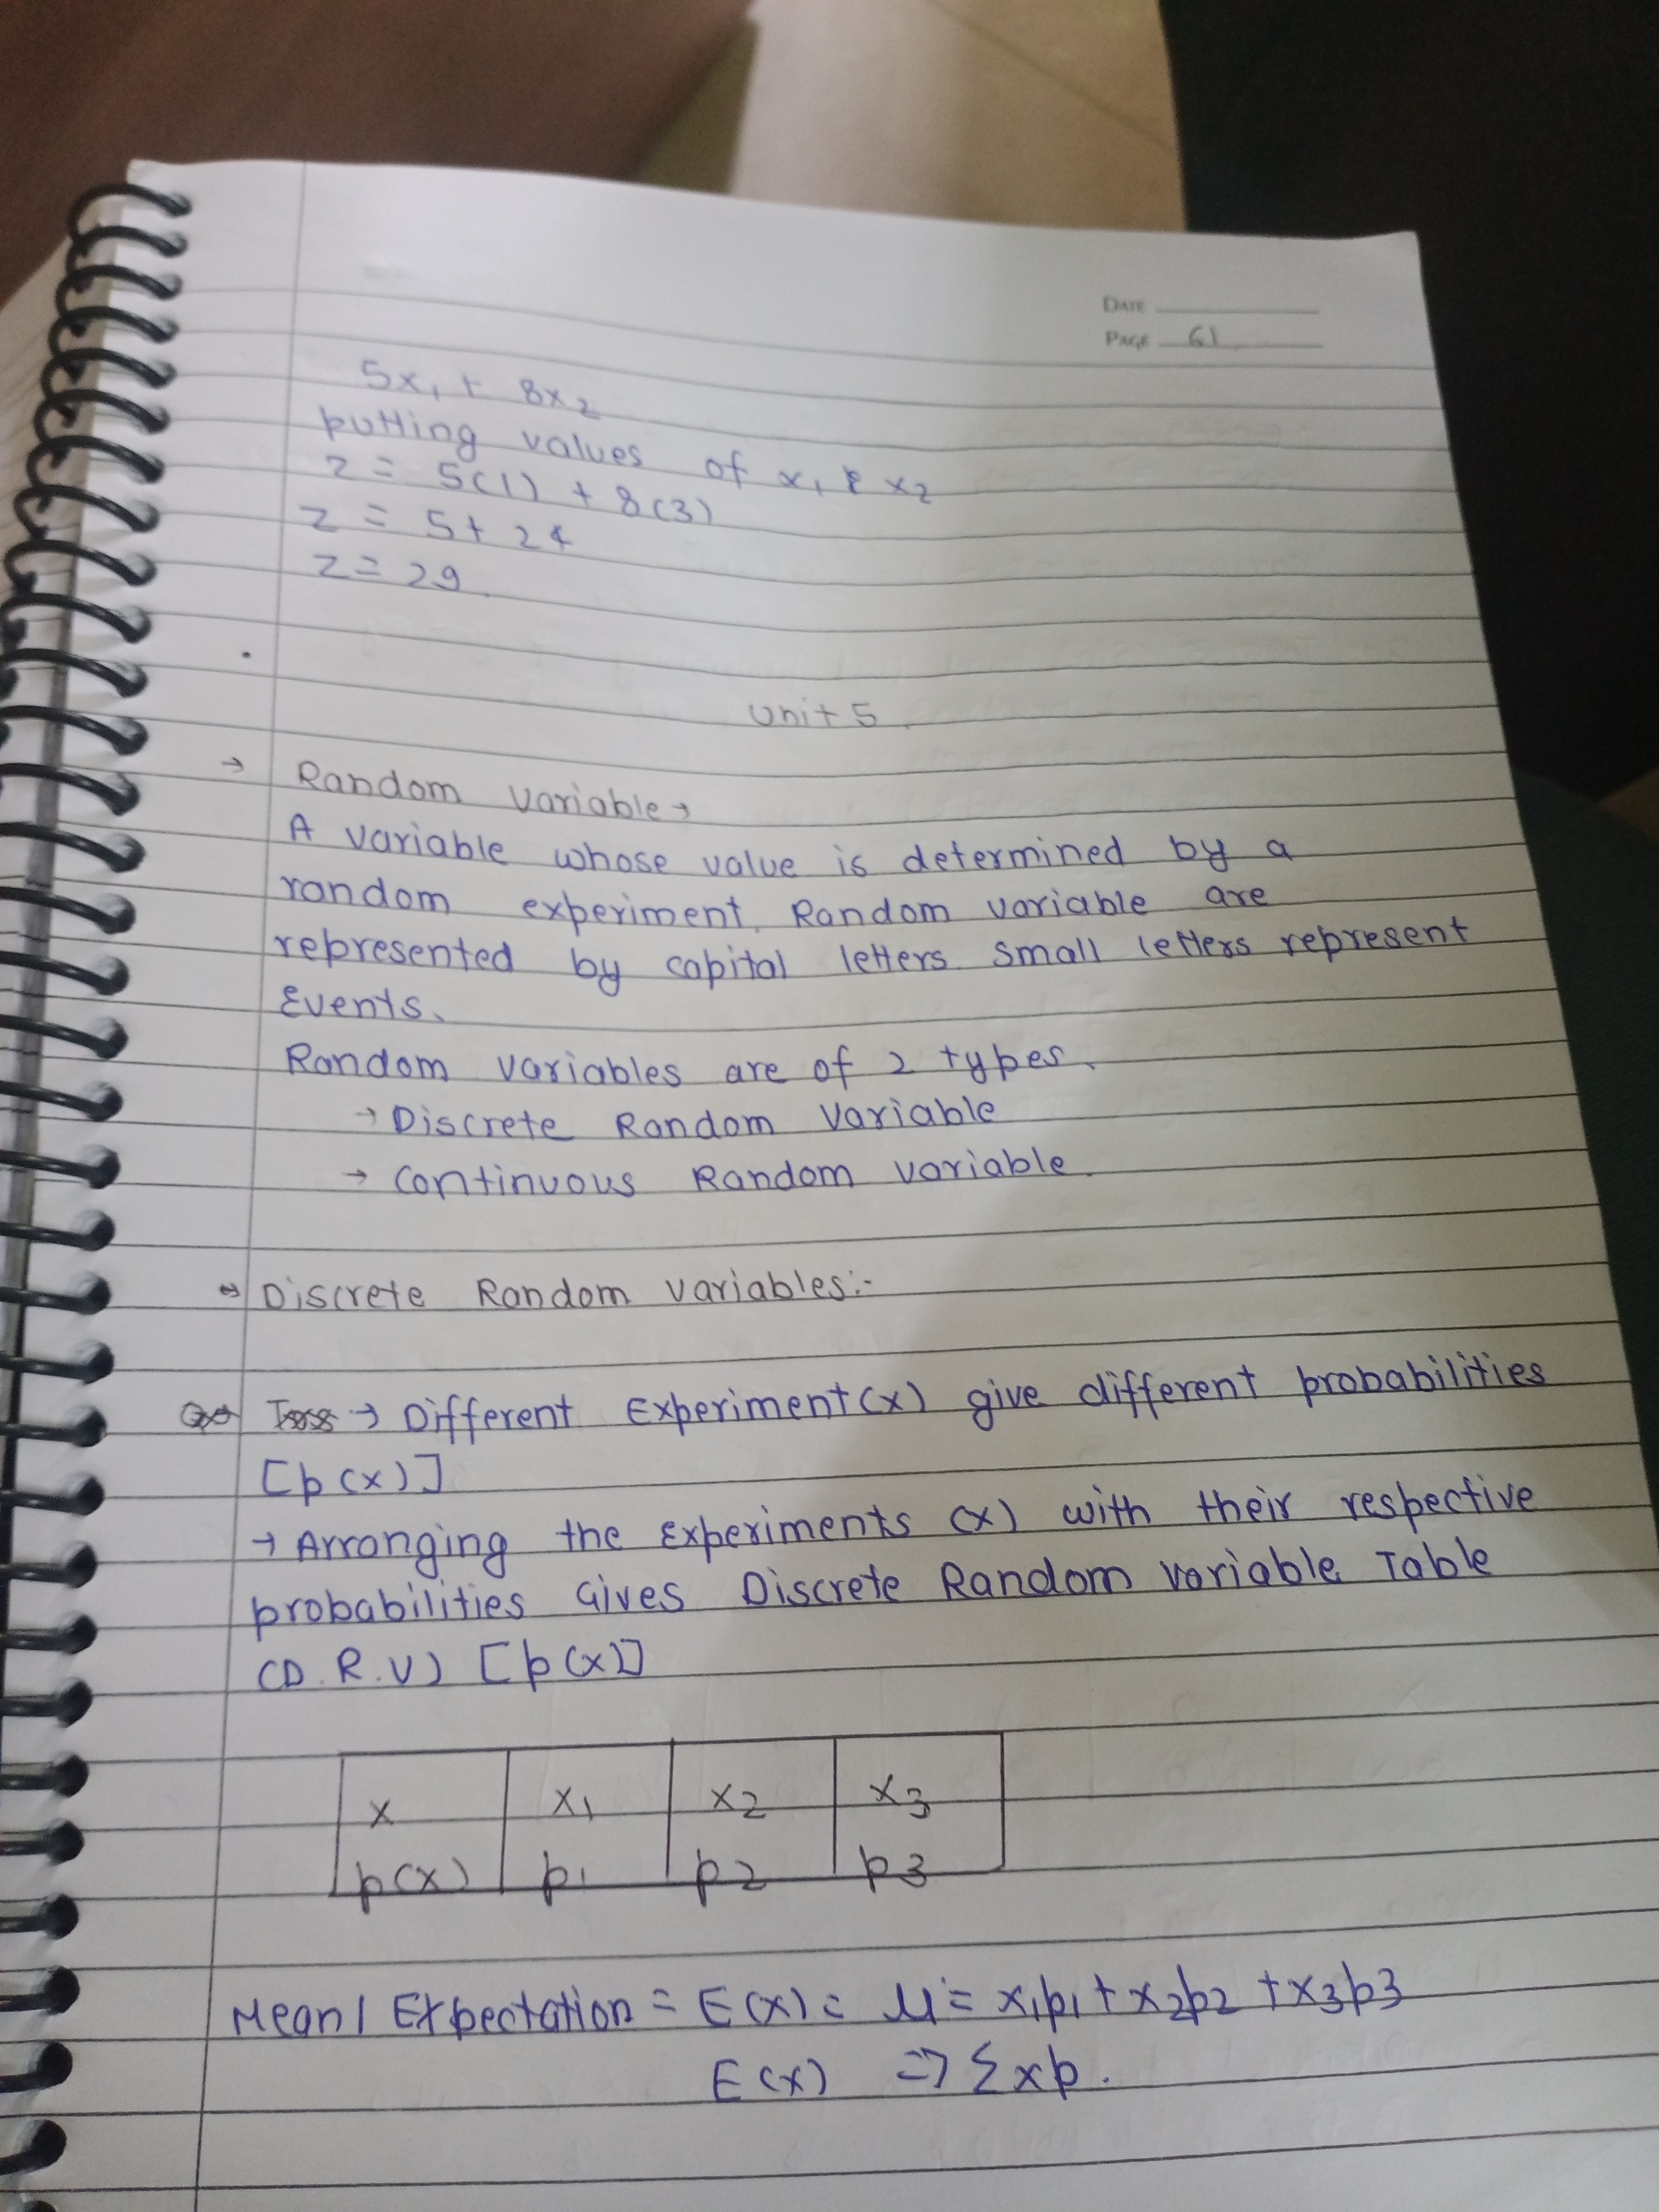 DATE
PAGE 61
5x1 + 8x2
putting values of x1 & x2
z = 5(1) + 8(3)
z = 5 + 24
z = 29
Unit 5.
→ Random Variable →
A variable whose value is determined by a
random experiment. Random variable are
represented by capital letters small letters represent
Events.
Random variables are of 2 types.
→ Discrete Random Variable
→ Continuous Random variable.
⇒ Discrete Random variables:-
→ Different Experiment (x) give different probabilities
[p(x)]
→ Arranging the Experiments (x) with their respective
probabilities Gives Discrete Random Variable Table
(D.R.V) [p(x)]
x x1 x2 x3
p(x) p1 p2 p3
Mean / Expectation = E(x) = μ = x1p1 + x2p2 + x3p3
E(x) => Σxp.